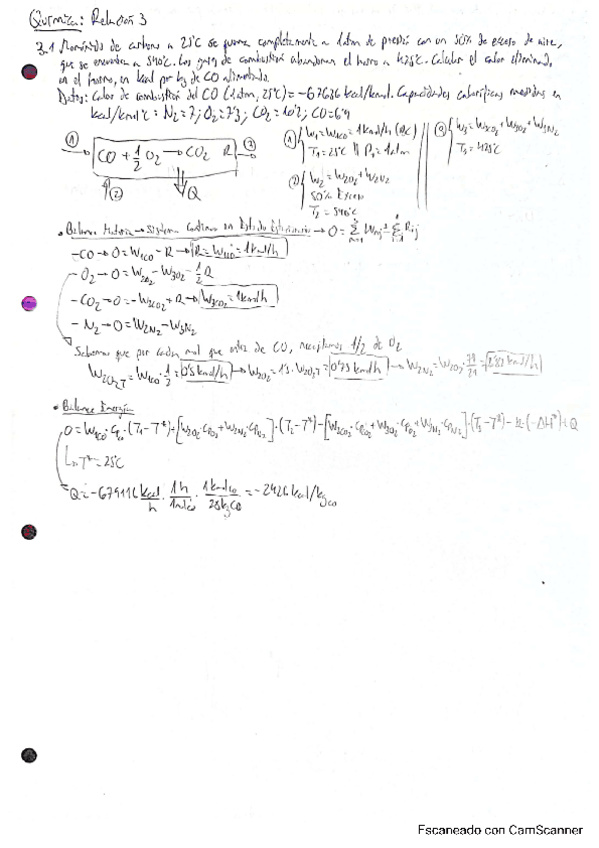 Química: Relación 3
3.1 Monóxido de carbono a 25ºC se quema completamente a 1atm de presión con un 50% de exceso de aire,
que se encuentra a 540ºC. Los gases de combustión abandonan el horno a 425ºC. Calcular el calor eliminado,
en el horno, en kcal por kg de CO alimentado.
Datos: Calor de combustión del CO (1atm, 25ºC) = -67636 kcal/kmol. Capacidades caloríficas medidas en
kcal/kmolºC: N2=7; O2=7'3; CO2=10'2; CO=6'9
① CO + 1/2 O2 → CO2 R ③
② Q
① W1=W1CO=1kmol/h (BC)
T1=25ºC || P1=1atm
② W2=W2O2+W2N2
50% Exceso
T2=540ºC
③ W3=W3CO2+W3O2+W3N2
T3=425ºC
• Balance Materia → Sistema Continuo en Estado Estacionario → 0=
-CO → 0=W1CO-R → R=W1CO=1kmol/h
-O2 → 0=W2O2-W3O2-1/2 R
-CO2 → 0=-W3CO2+R → W3CO2=1kmol/h
-N2 → 0=W2N2-W3N2
Sabemos que por cada mol que entra de CO, necesitamos 1/2 de O2
W2O2T=W1CO·1/2=0'5kmol/h → W2O2=1'5·W2O2T=0'75kmol/h → W2N2=W2O2·79/21=
• Balance Energía
0=W1CO·CpCO·(T1-T*)+[W2O2·CpO2+W2N2·CpN2]·(T2-T*)-[W3CO2·CpCO2+W3O2·CpO2+W3N2·CpN2]·(T3-T*)
T*=25ºC
kcal/h · 1h/ · 1kmolCO/28kgCO = -2426 kcal/kgCO
Escaneado con CamScanner